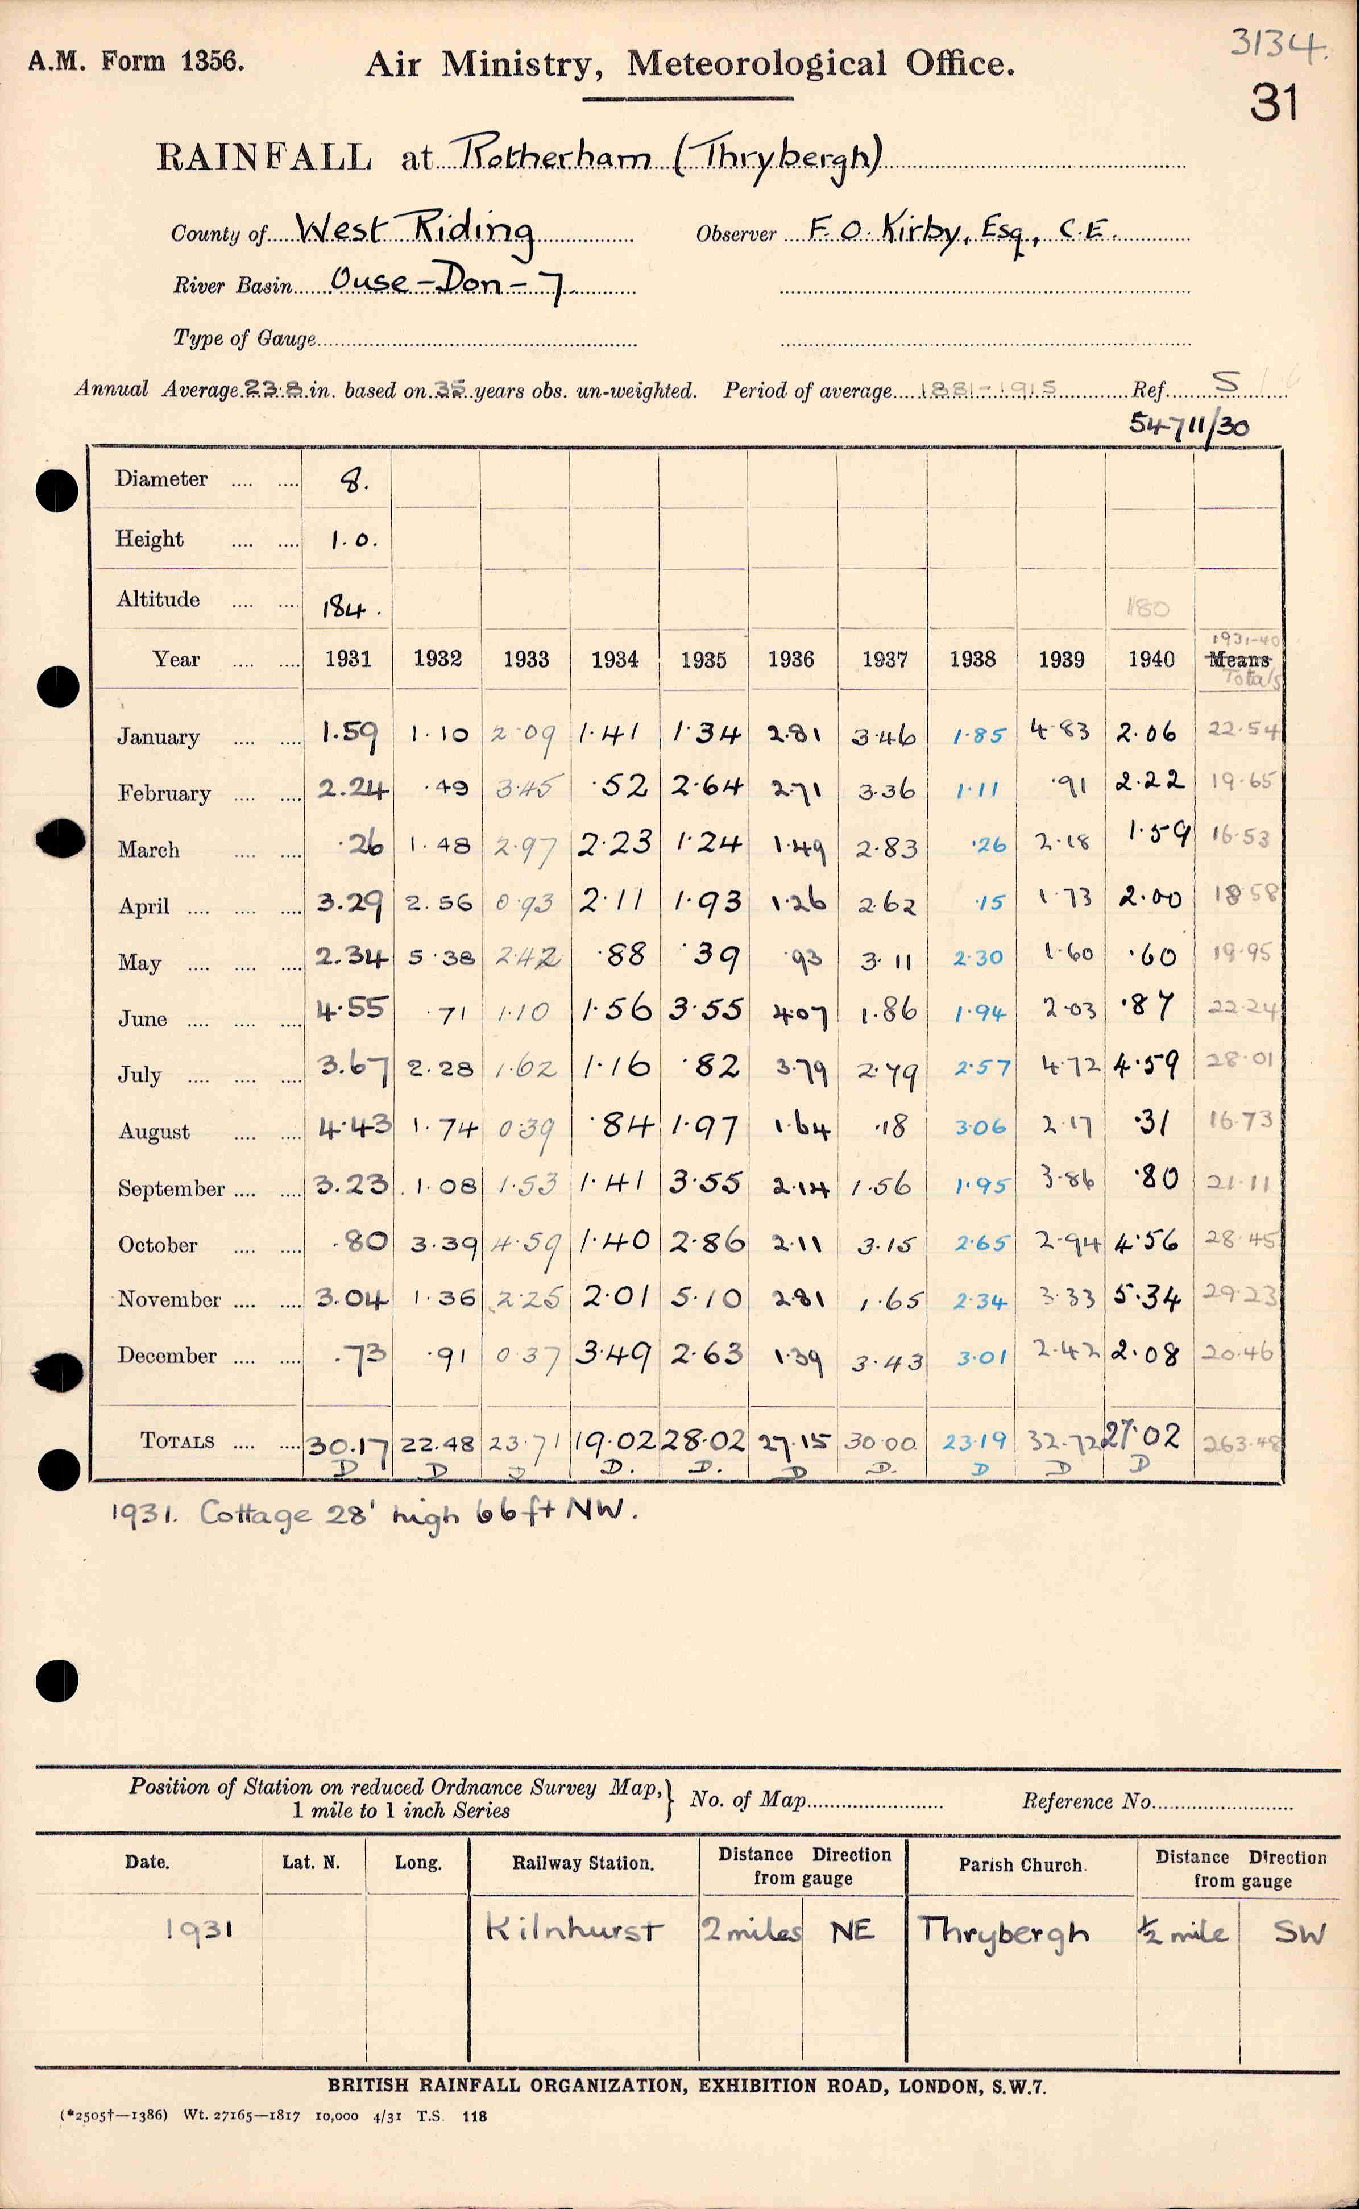 3134.
A.M. Form 1356. Air Ministry, Meteorological Office.
31
RAINFALL at Rotherham (Thrybergh)
County of West Riding Observer F. O. Kirby, Esq., C.E.
River Basin Ouse-Don-7
Type of Gauge
Annual Average 23.8 in. based on 35 years obs. un-weighted. Period of average 1881-1915 Ref. S
54711/30
Diameter 8.
Height 1.0.
Altitude 184. 180
1931-40
Year 1931 1932 1933 1934 1935 1936 1937 1938 1939 1940 Means
Totals
January 1.59 1.10 2.09 1.41 1.34 2.81 3.46 1.85 4.83 2.06 22.54
February 2.24 .49 3.45 .52 2.64 2.71 3.36 1.11 .91 2.22 19.65
March .26 1.48 2.97 2.23 1.24 1.49 2.83 .26 2.18 1.59 16.53
April 3.29 2.56 0.93 2.11 1.93 1.26 2.62 .15 1.73 2.00 18.58
May 2.34 5.38 2.42 .88 .39 .93 3.11 2.30 1.60 .60 19.95
June 4.55 .71 1.10 1.56 3.55 4.07 1.86 1.94 2.03 .87 22.24
July 3.67 2.28 1.62 1.16 .82 3.79 2.79 2.57 4.72 4.59 28.01
August 4.43 1.74 0.39 .84 1.97 1.64 .18 3.06 2.17 .31 16.73
September 3.23 1.08 1.53 1.41 3.55 2.14 1.56 1.95 3.86 .80 21.11
October .80 3.39 4.59 1.40 2.86 2.11 3.15 2.65 2.94 4.56 28.45
November 3.04 1.36 2.25 2.01 5.10 2.81 1.65 2.34 3.33 5.34 29.23
December .73 .91 0.37 3.49 2.63 1.39 3.43 3.01 2.42 2.08 20.46
TOTALS 30.17 22.48 23.71 19.02 28.02 27.15 30.00 23.19 32.72 27.02 263.48
D D D D. D. D D. D D D
1931. Cottage 28' high 66 ft NW.
Position of Station on reduced Ordnance Survey Map, 1 mile to 1 inch Series } No. of Map Reference No.
Date. Lat. N. Long. Railway Station. Distance Direction from gauge Parish Church. Distance Direction from gauge
1931 Kilnhurst 2 miles NE Thrybergh ½ mile SW
BRITISH RAINFALL ORGANIZATION, EXHIBITION ROAD, LONDON, S.W.7.
(*2505†—1386) Wt. 27165—1817 10,000 4/31 T.S. 118